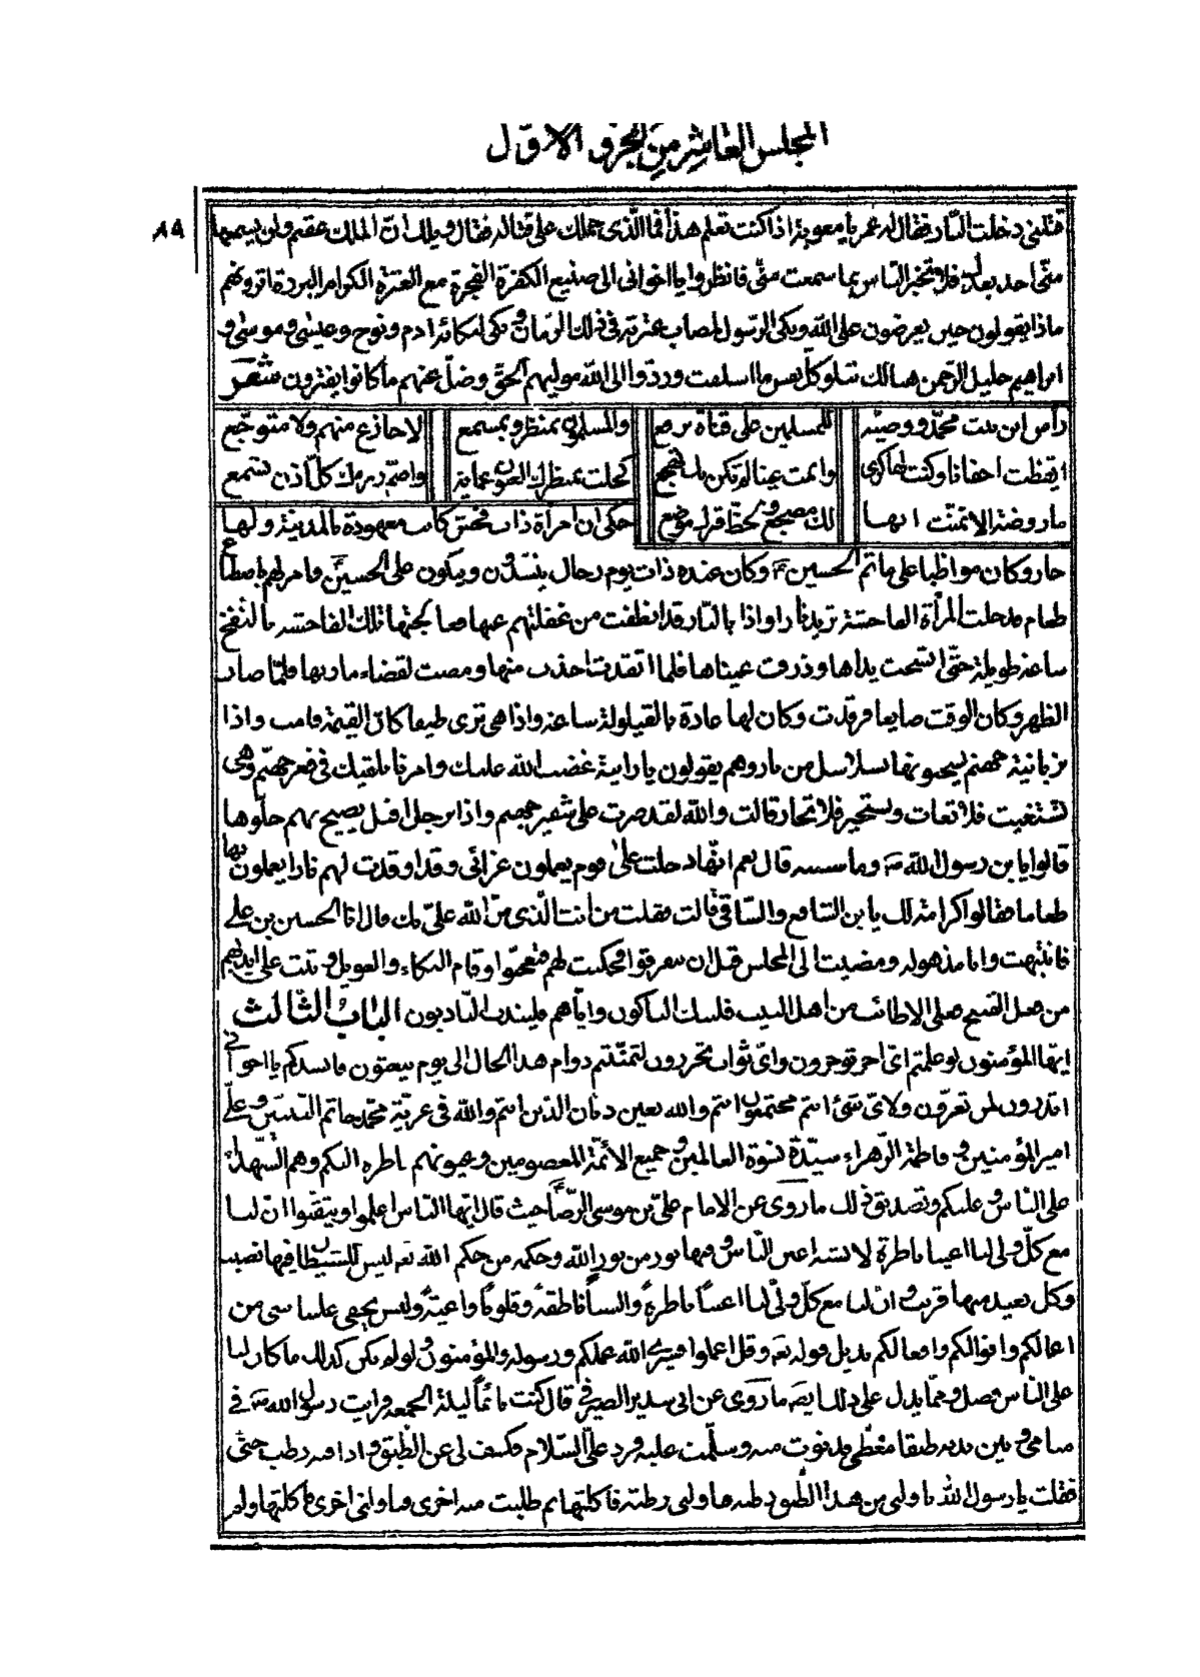 المجلس العاشر من الجزو الاول
٨٩
قتلنى دخلت النار فقال له عمر يا معوية اذا كنت تعلم هذا فما الّذى حملك على قتاله فقال ويلك انّ الملك عقيم ولن يسمعها
منّى احد بعدك فلا تخبر النّاس بما سمعت منّى فانظروا يا اخوانى الى صنيع الكفرة الفجرة مع العترة الكرام البررة اترونهم
ماذا يقولون حين يعرضون على الله ويبكى الرّسول لمصاب عترته فى ذلك الزمان و يبكى لبكائه ادم ونوح وعيسى وموسى و
ابراهيم خليل الرّحمن هنالك تبلو كلّ نفس ما اسلفت وردّوا الى الله موليهم الحقّ وضلّ عنهم ما كانوا يفترون شعر
رأس ابن بنت محمّد ووصيّه للمسلمين على قناة يرفع والمسلمون بمنظر وبمسمع لا جازع منهم ولا متوجّع
ايقظت اجفانا وكنت لها كرى وانمت عينا لم تكن بك تهجع كحلت بمنظرك العيون عماية واصمّ رزءك كلّ اذن تسمع
ما روضة الا تمنّت انها لك مضجع ولخطّ قبرك موضع
حكى ان امرأة ذات فحش كانت معهودة بالمدينة ولها
جار وكان مواظبا على ماتم الحسين ع وكان عنده ذات يوم رجال ينشدون ويبكون على الحسين ع فامر لهم باصطناع
طعام فدخلت المرأة الفاحشة تريد نارا واذا بالنّار قد انطفت من غفلتهم عنها فعالجتها تلك الفاحشة بالنفخ
ساعة طويلة حتّى اتسخت يداها وذرفت عيناها فلما اتقدت اخذت منها ومضت لقضاء ماربها فلمّا صار
الظهر وكان الوقت صايفا فرقدت وكان لها عادة بالقيلولة ساعة واذا هى ترى طيفا كان القيمة قامت واذا
بزبانية جهنم يسحبونها بسلاسل من نار وهم يقولون يا زانية غضب الله عليك وامرنا ان نلقيك فى قعر جهنّم وهى
تستغيث فلا تغاث وتستجير فلا تجار قالت والله لقد صرت على شفير جهنم واذا برجل اقبل يصيح بهم خلّوها
قالوا يا بن رسول الله ص وما سببه قال نعم انّها دخلت على قوم يعملون عزائى وقد اوقدت لهم نارا يعملون بها
طعاما فقالوا كرامة لك يا بن الشافع والسّاقى قالت فقلت من انت الّذى منّ الله علىّ بك قال انا الحسين بن على
فانتبهت وانا مذهولة ومضيت الى المجلس قبل ان يتفرقوا فحكيت لهم فتعجّبوا وقام البكاء والعويل و تبت على ايديهم
من فعل القبيح فعلى الاطائب من اهل البيت فليبك الباكون واياهم فليندب النّادبون الباب الثّالث
ايّها المؤمنون لو علمتم اىّ اجر توجرون واىّ ثواب تحرزون لتمنّيتم دوام هذا الحال الى يوم يبعثون فانشدكم يا اخوانى
اتدرون لمن تعزّون ولاىّ شئ انتم مجتمعون انتم والله بعين الذين انتم والله فى عزيّة محمّد خاتم النبيّين و علىّ
امير المؤمنين و فاطمة الزّهراء سيّدة نسوة العالمين و جميع الائمّة المعصومين وعيونهم ناظرة اليكم وهم الشّهداء
على النّاس و عليكم وتصديق ذلك ما روى عن الامام علىّ بن موسى الرّضا ع حيث قال ايّها النّاس اعلموا وتيقّنوا ان لنا
مع كلّ ولى لنا اعينا ناظرة لا تشبه اعين النّاس و فيها نور من نور الله وحكمه من حكم الله تعه ليس للشيطان فيها نصيب
وكل بعيد منها قريب و ان لنا مع كلّ ولىّ لنا اعيناً ناظرةً والسناً ناطقةً وقلوباً واعيةً وليس يخفى علينا شئ من
اعمالكم واقوالكم وافعالكم بدليل قوله تعه وقل اعملوا فسيرى الله عملكم ورسوله والمؤمنون و لو لم يكن كذلك ما كان لنا
على النّاس فضل و ممّا يدل على ذلك ايضه ما روى عن ابى سدير الصيرفى قال كنت نائماً ليلة الجمعه فرايت رسول الله ص فى
منامى و بين يديه طبقا مغطّى فدنوت منه وسلّمت عليه فرد علىّ السّلام فكشف لى عن الطّبق و اذا فيه رطب جنىّ
فقلت يا رسول الله ناولنى من هذا الطّبق رطبة فناولنى رطبة فاكلتها ثم طلبت منه اخرى فناولنى اخرى فاكلتها ولم